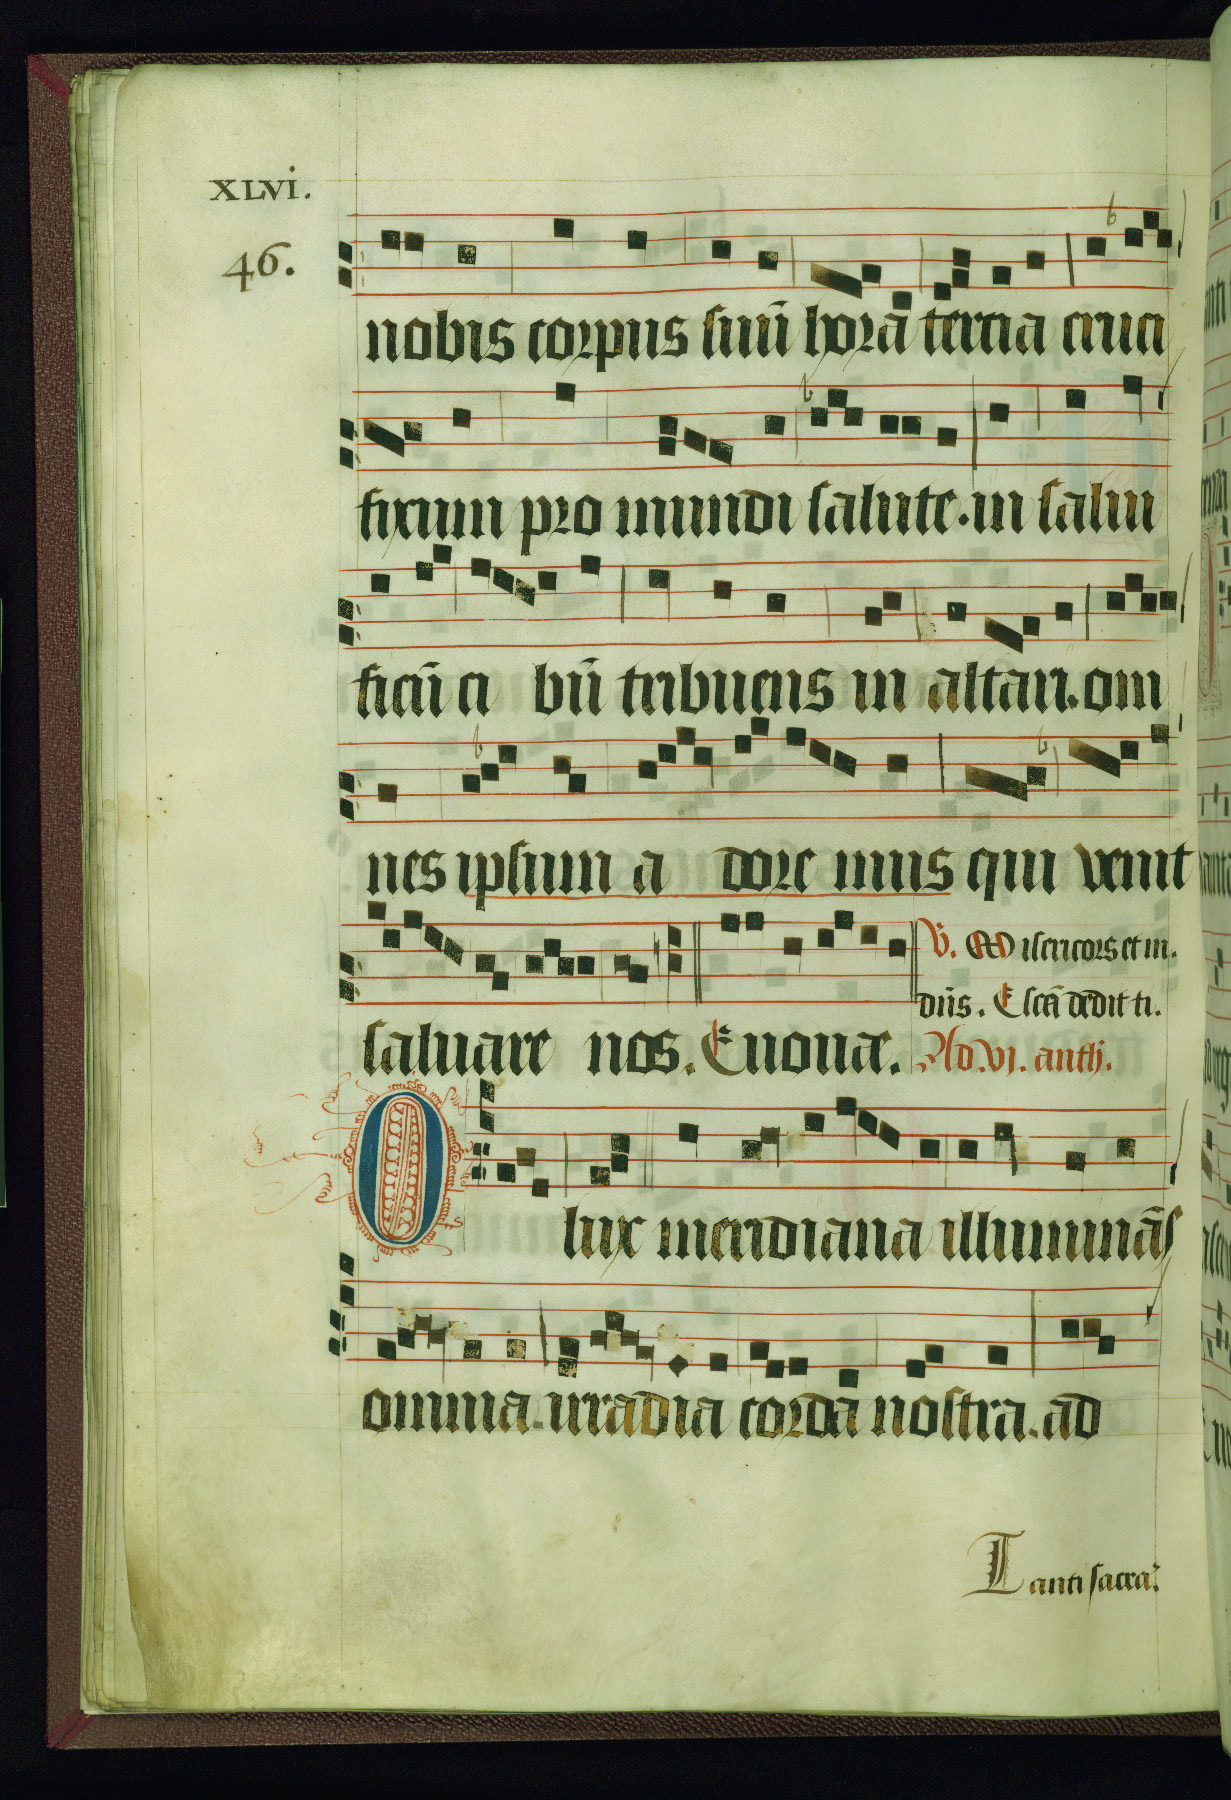 XLVi.
46.
nobis corpus suū hora tercia cruci
fixum pro mundi salute. in salu
ficū ci bū tribuens in altari. om
nes ipsum a dore mus qui venit
℣. Misericors et m.
dn̄s. Escā dedit ti.
saluare nos. Euouae. Ad. vj. anth.
O lux meridiana illuminās
omnia. irradia corda nostra. ad
Tanti sacra.